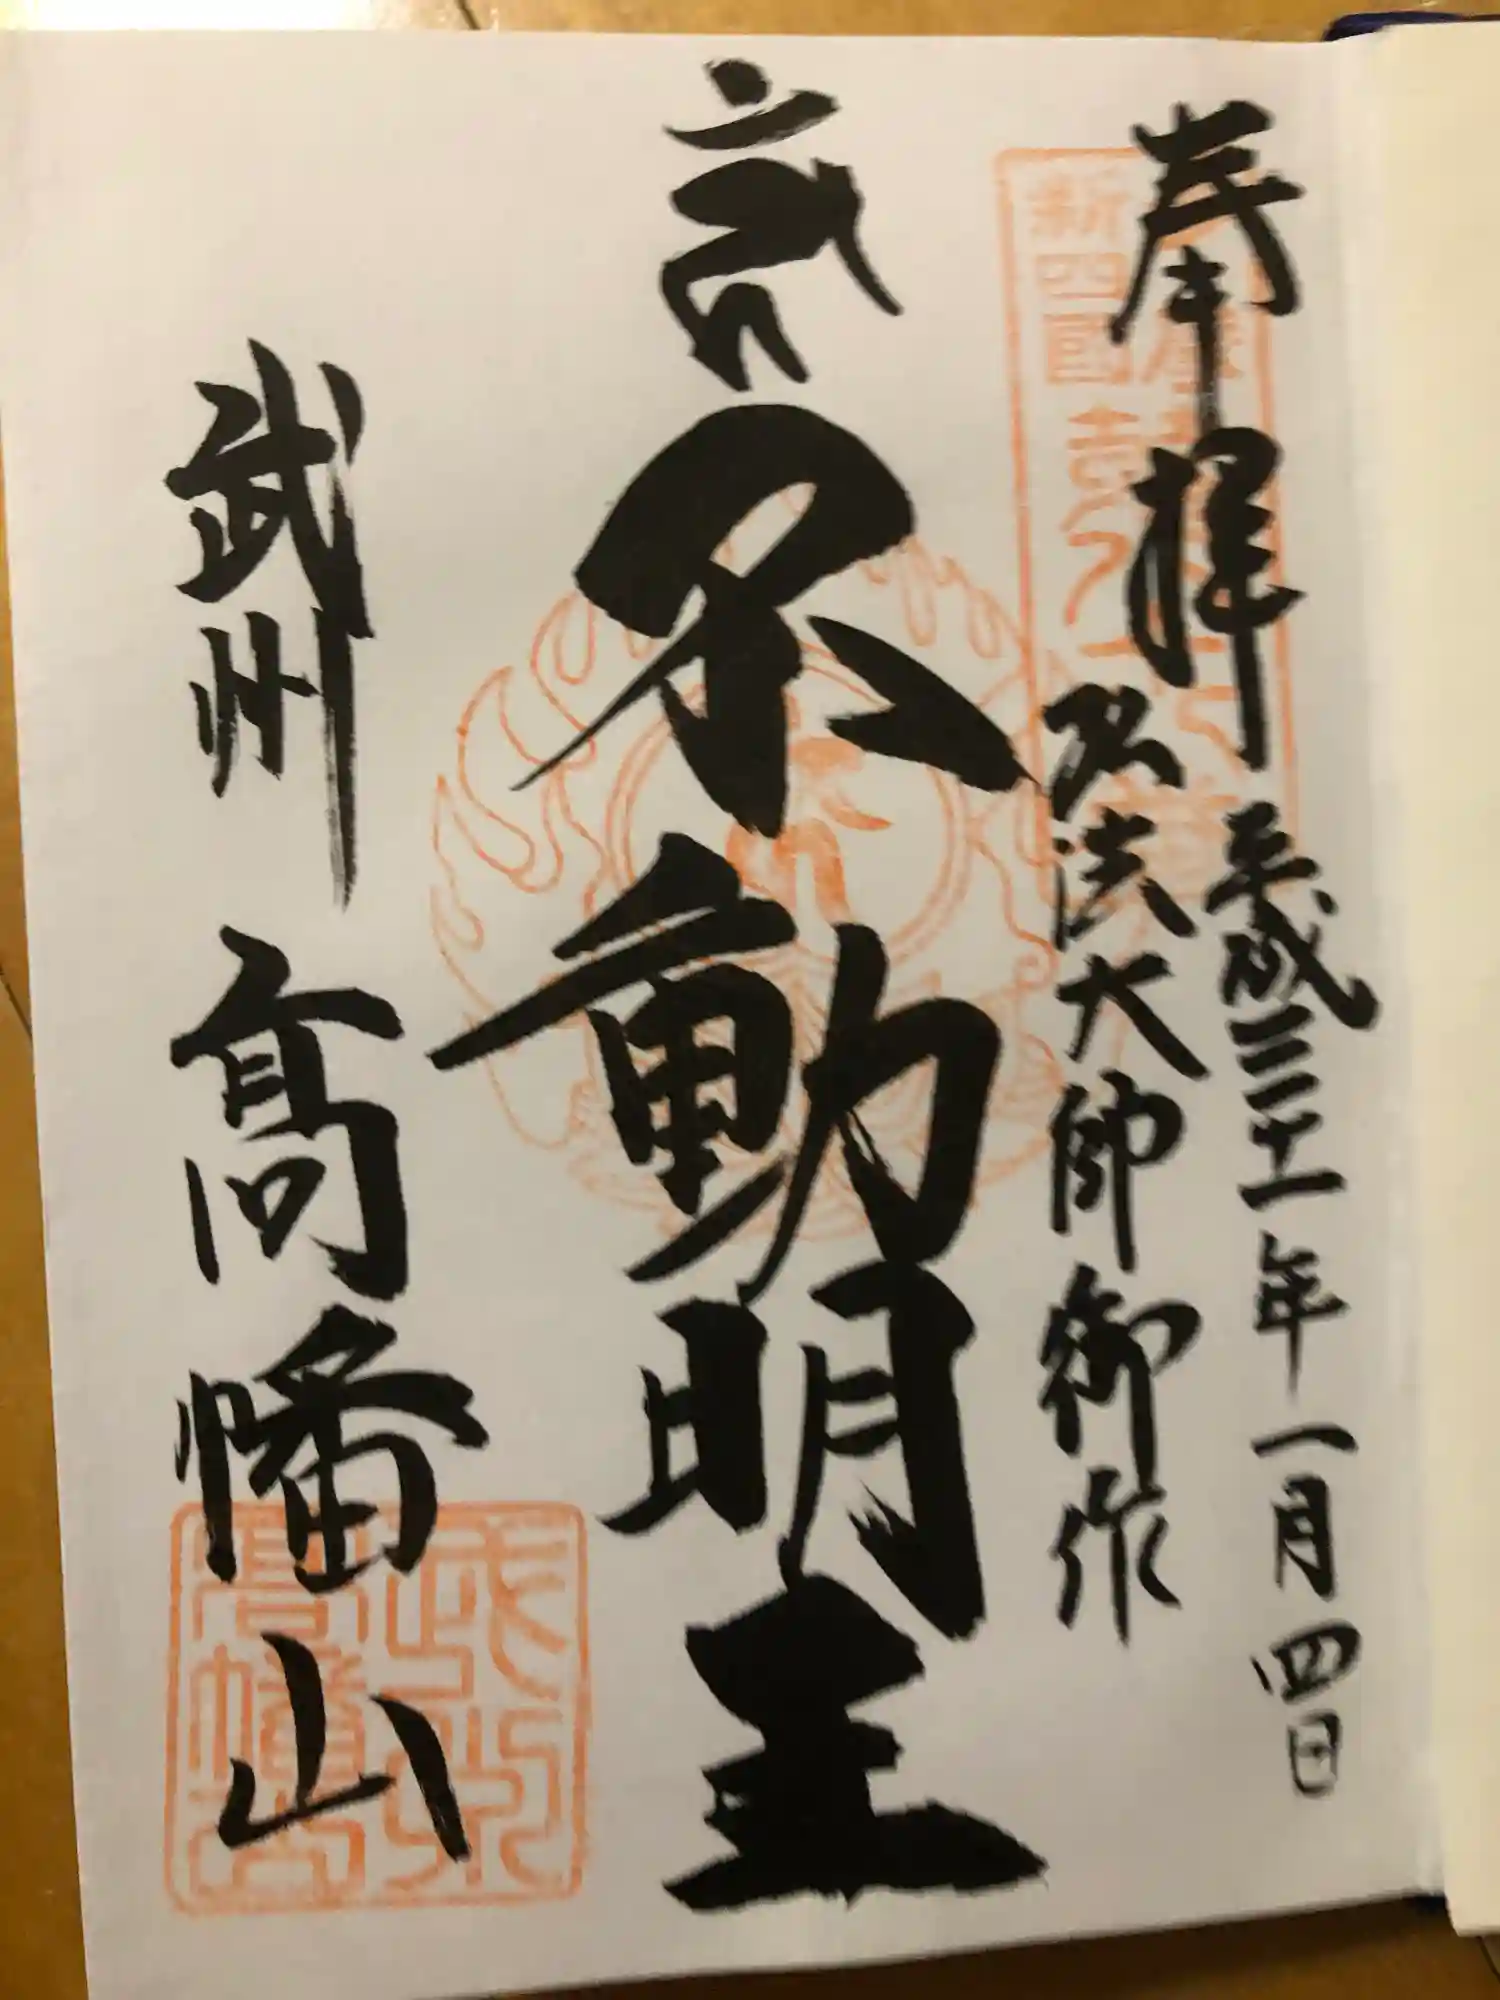 奉拝
平成三十一年一月四日
弘法大師御作
不動明王
武州 高幡山
新四國